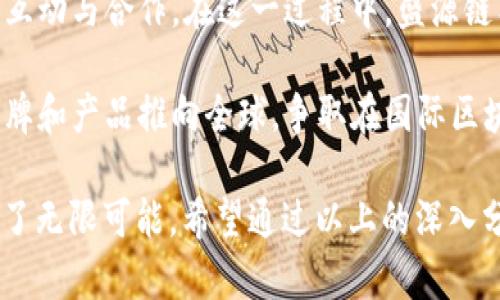 互动与合作。在这一过程中，盘源链
牌和产品推向全球，争取在国际区块
区块链
了无限可能。希望通过以上的深入分